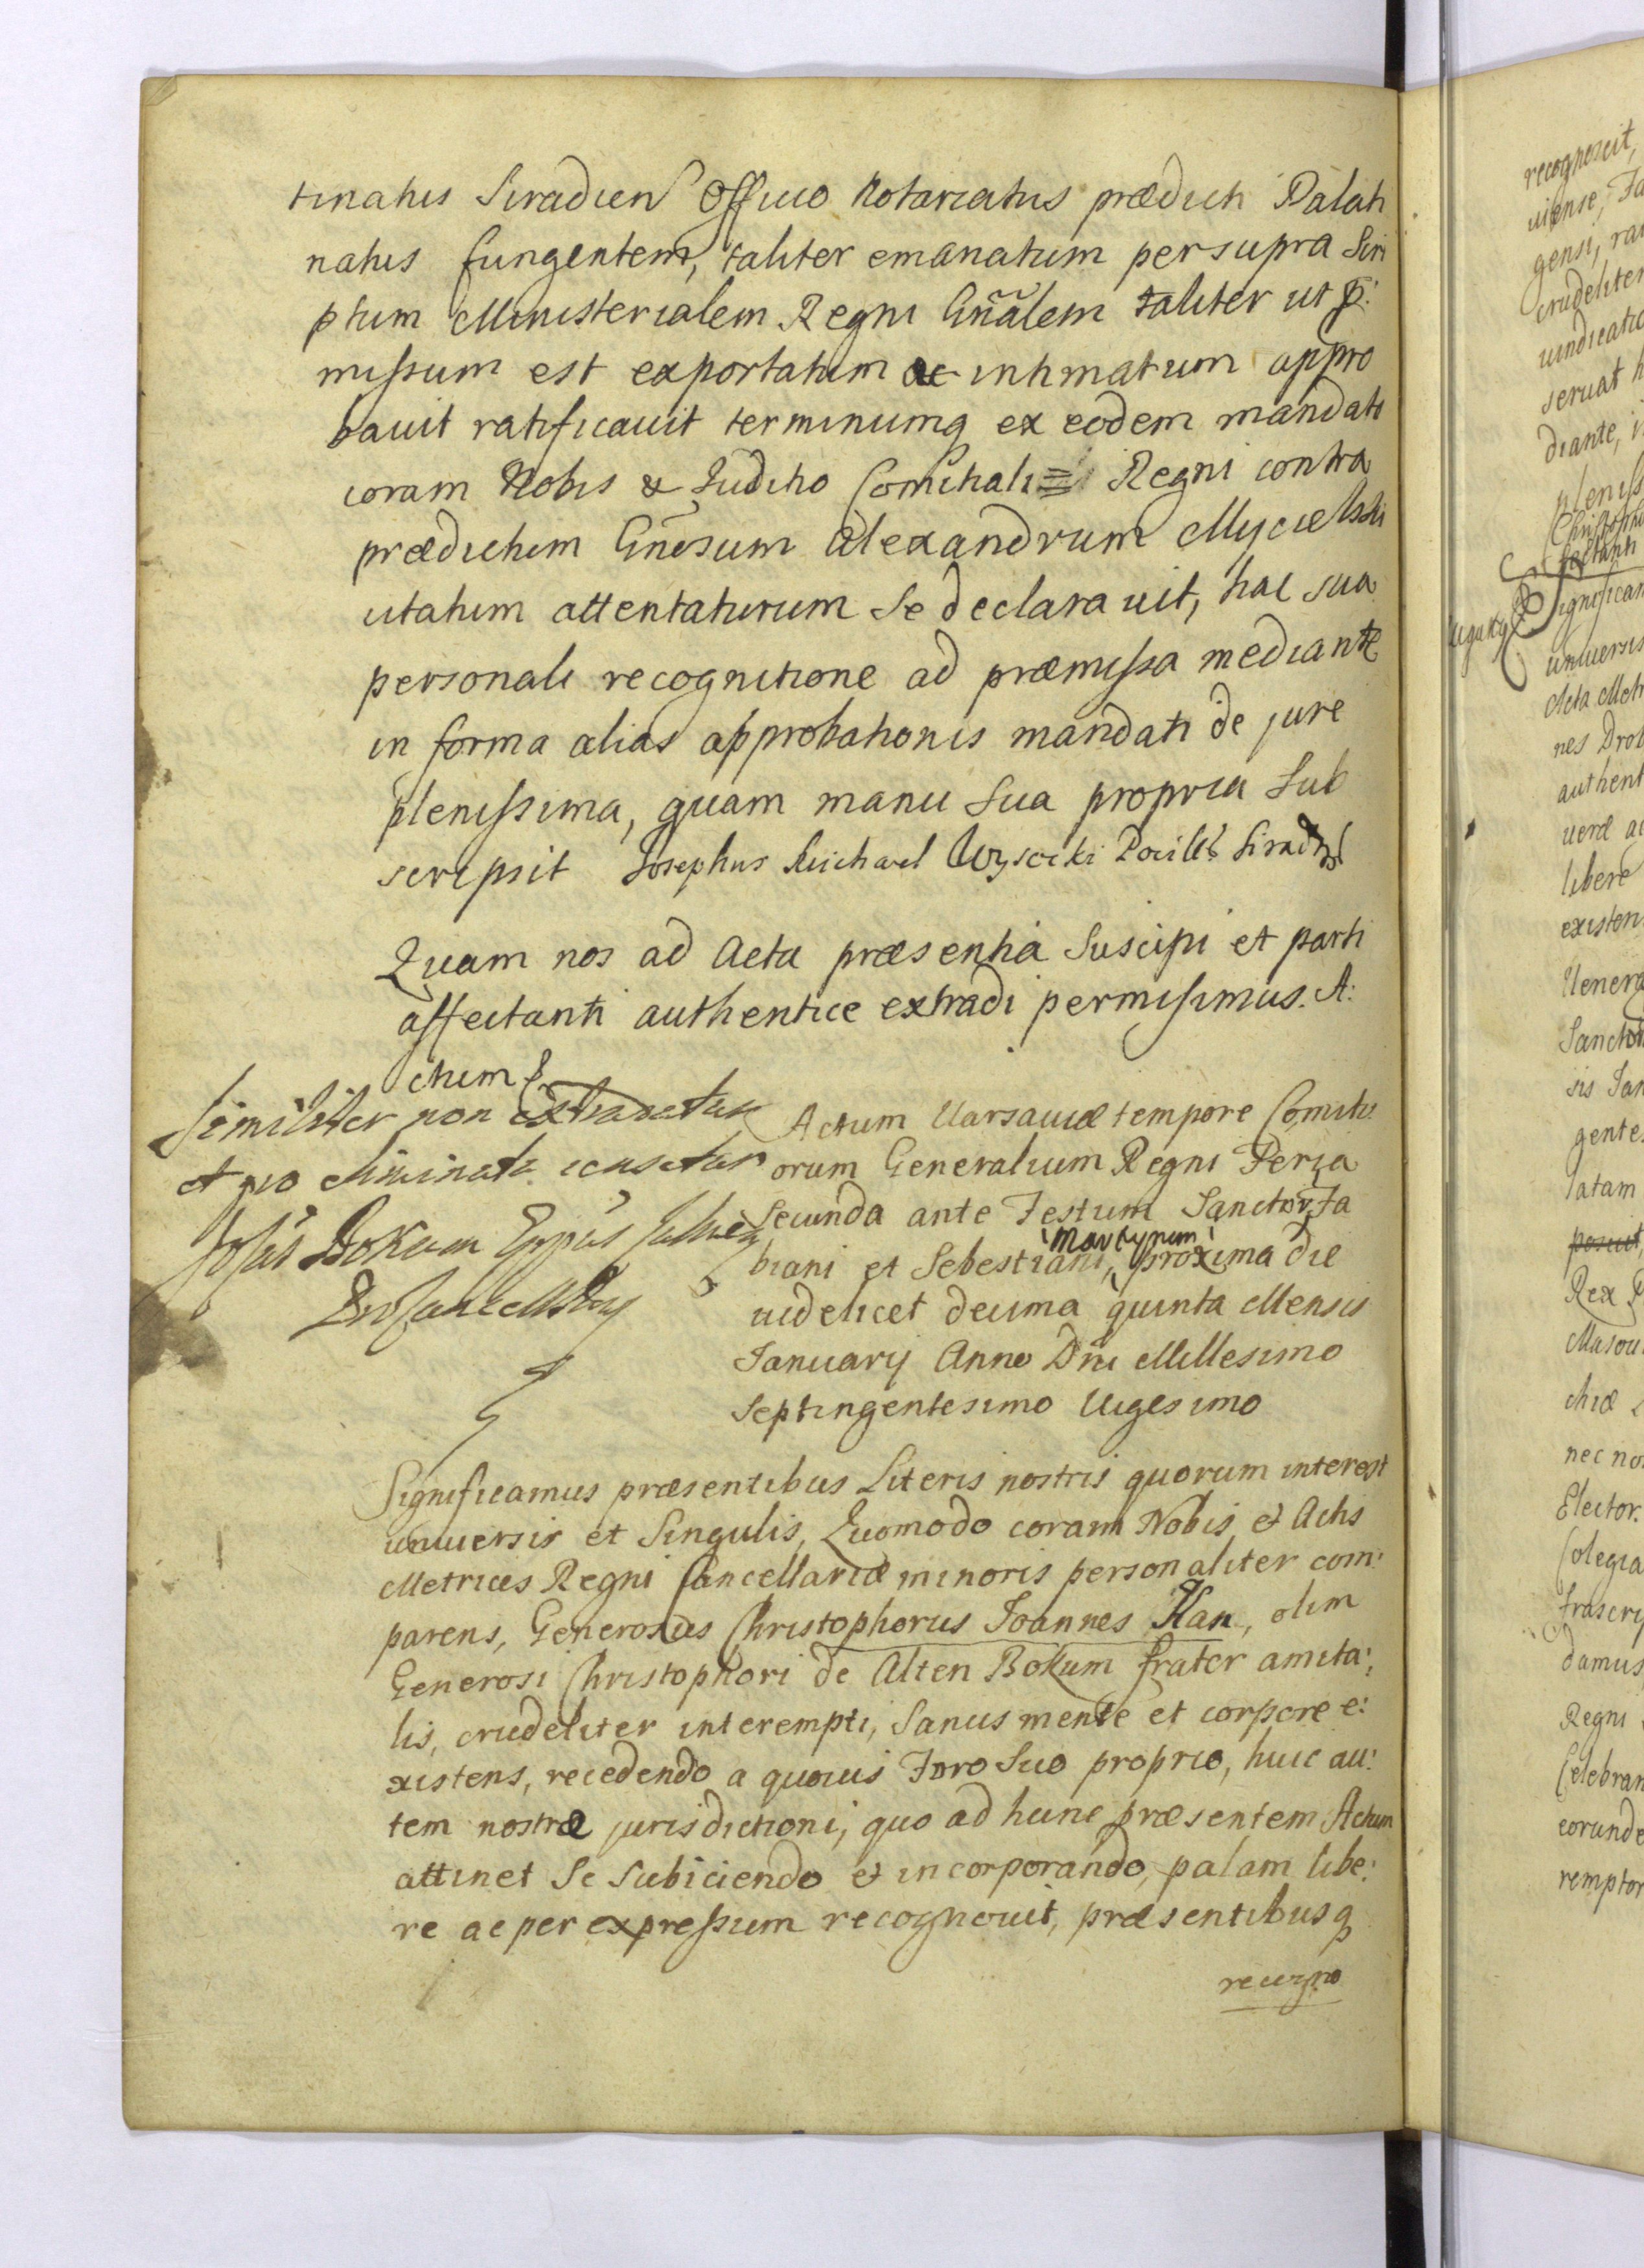 tinatus Siradien Officio Notariatus prædicti Palati
natus fungentem, taliter emanatum per supra Scri
ptum Ministerialem Regni Gnalem taliter ut p:
missum est exportatum ac intimatum appro
bauit ratificauit terminumq ex eodem mandato
coram Nobis & Juditio Comitiali Regni contra
prædictum Gnosum Alexandrum Mycielski
citatum attentaturum Se declarauit, hac sua
personali recognitione ad præmissa mediante
in forma alias approbationis mandati de jure
plenissima, quam manu Sua propria Sub
scripsit Josephus Michael Wysocki Pocill: Sirad
Quam nos ad Acta præsentia Suscipi et parti
affectanti authentice extradi permisimus. A:
ctum
Similiter non extradetur
et pro eliminato censetur
Actum Varsauiæ tempore Comiti
orum Generalium Regni Feria
Secunda ante Festum Sanctor Fa
biani et Sebestiani, Martyrum proxima die
uidelicet decima quinta Mensis
January Anno Dni Millesimo
Septingentesimo Uigesimo
Significamus præsentibus Literis nostris quorum interest
uniuersis et Singulis, Quomodo coram Nobis & Actis
Metrices Regni Cancellariæ minoris personaliter com:
parens, Generosus Christophorus Joannes Han, olim
Generosi Christophori de Alten Bokum frater amita:
lis, crudeliter interempti, Sanus mente et corpore e:
xistens, recedendo a quouis Foro Suo proprio, huic au:
tem nostræ jurisdictioni, quo ad hunc præsentem Actum
attinet Se Subiciendo & incorporando, palam libe:
re ac per expressum recognouit, præsentibusq
recogno
recognoscit,
crudeliter
uindicatio
diante, i
affectanti
Significam
uniuersis
Acta Metr
nes Drob
authent
libere
existen
Uenera
Sanctor
sis Jan
gente
latam
Rex P
Masou
chiæ L
nec no
Elector.
Colegia
frascri
damus
Regni
Celebran
eorunde
remptor